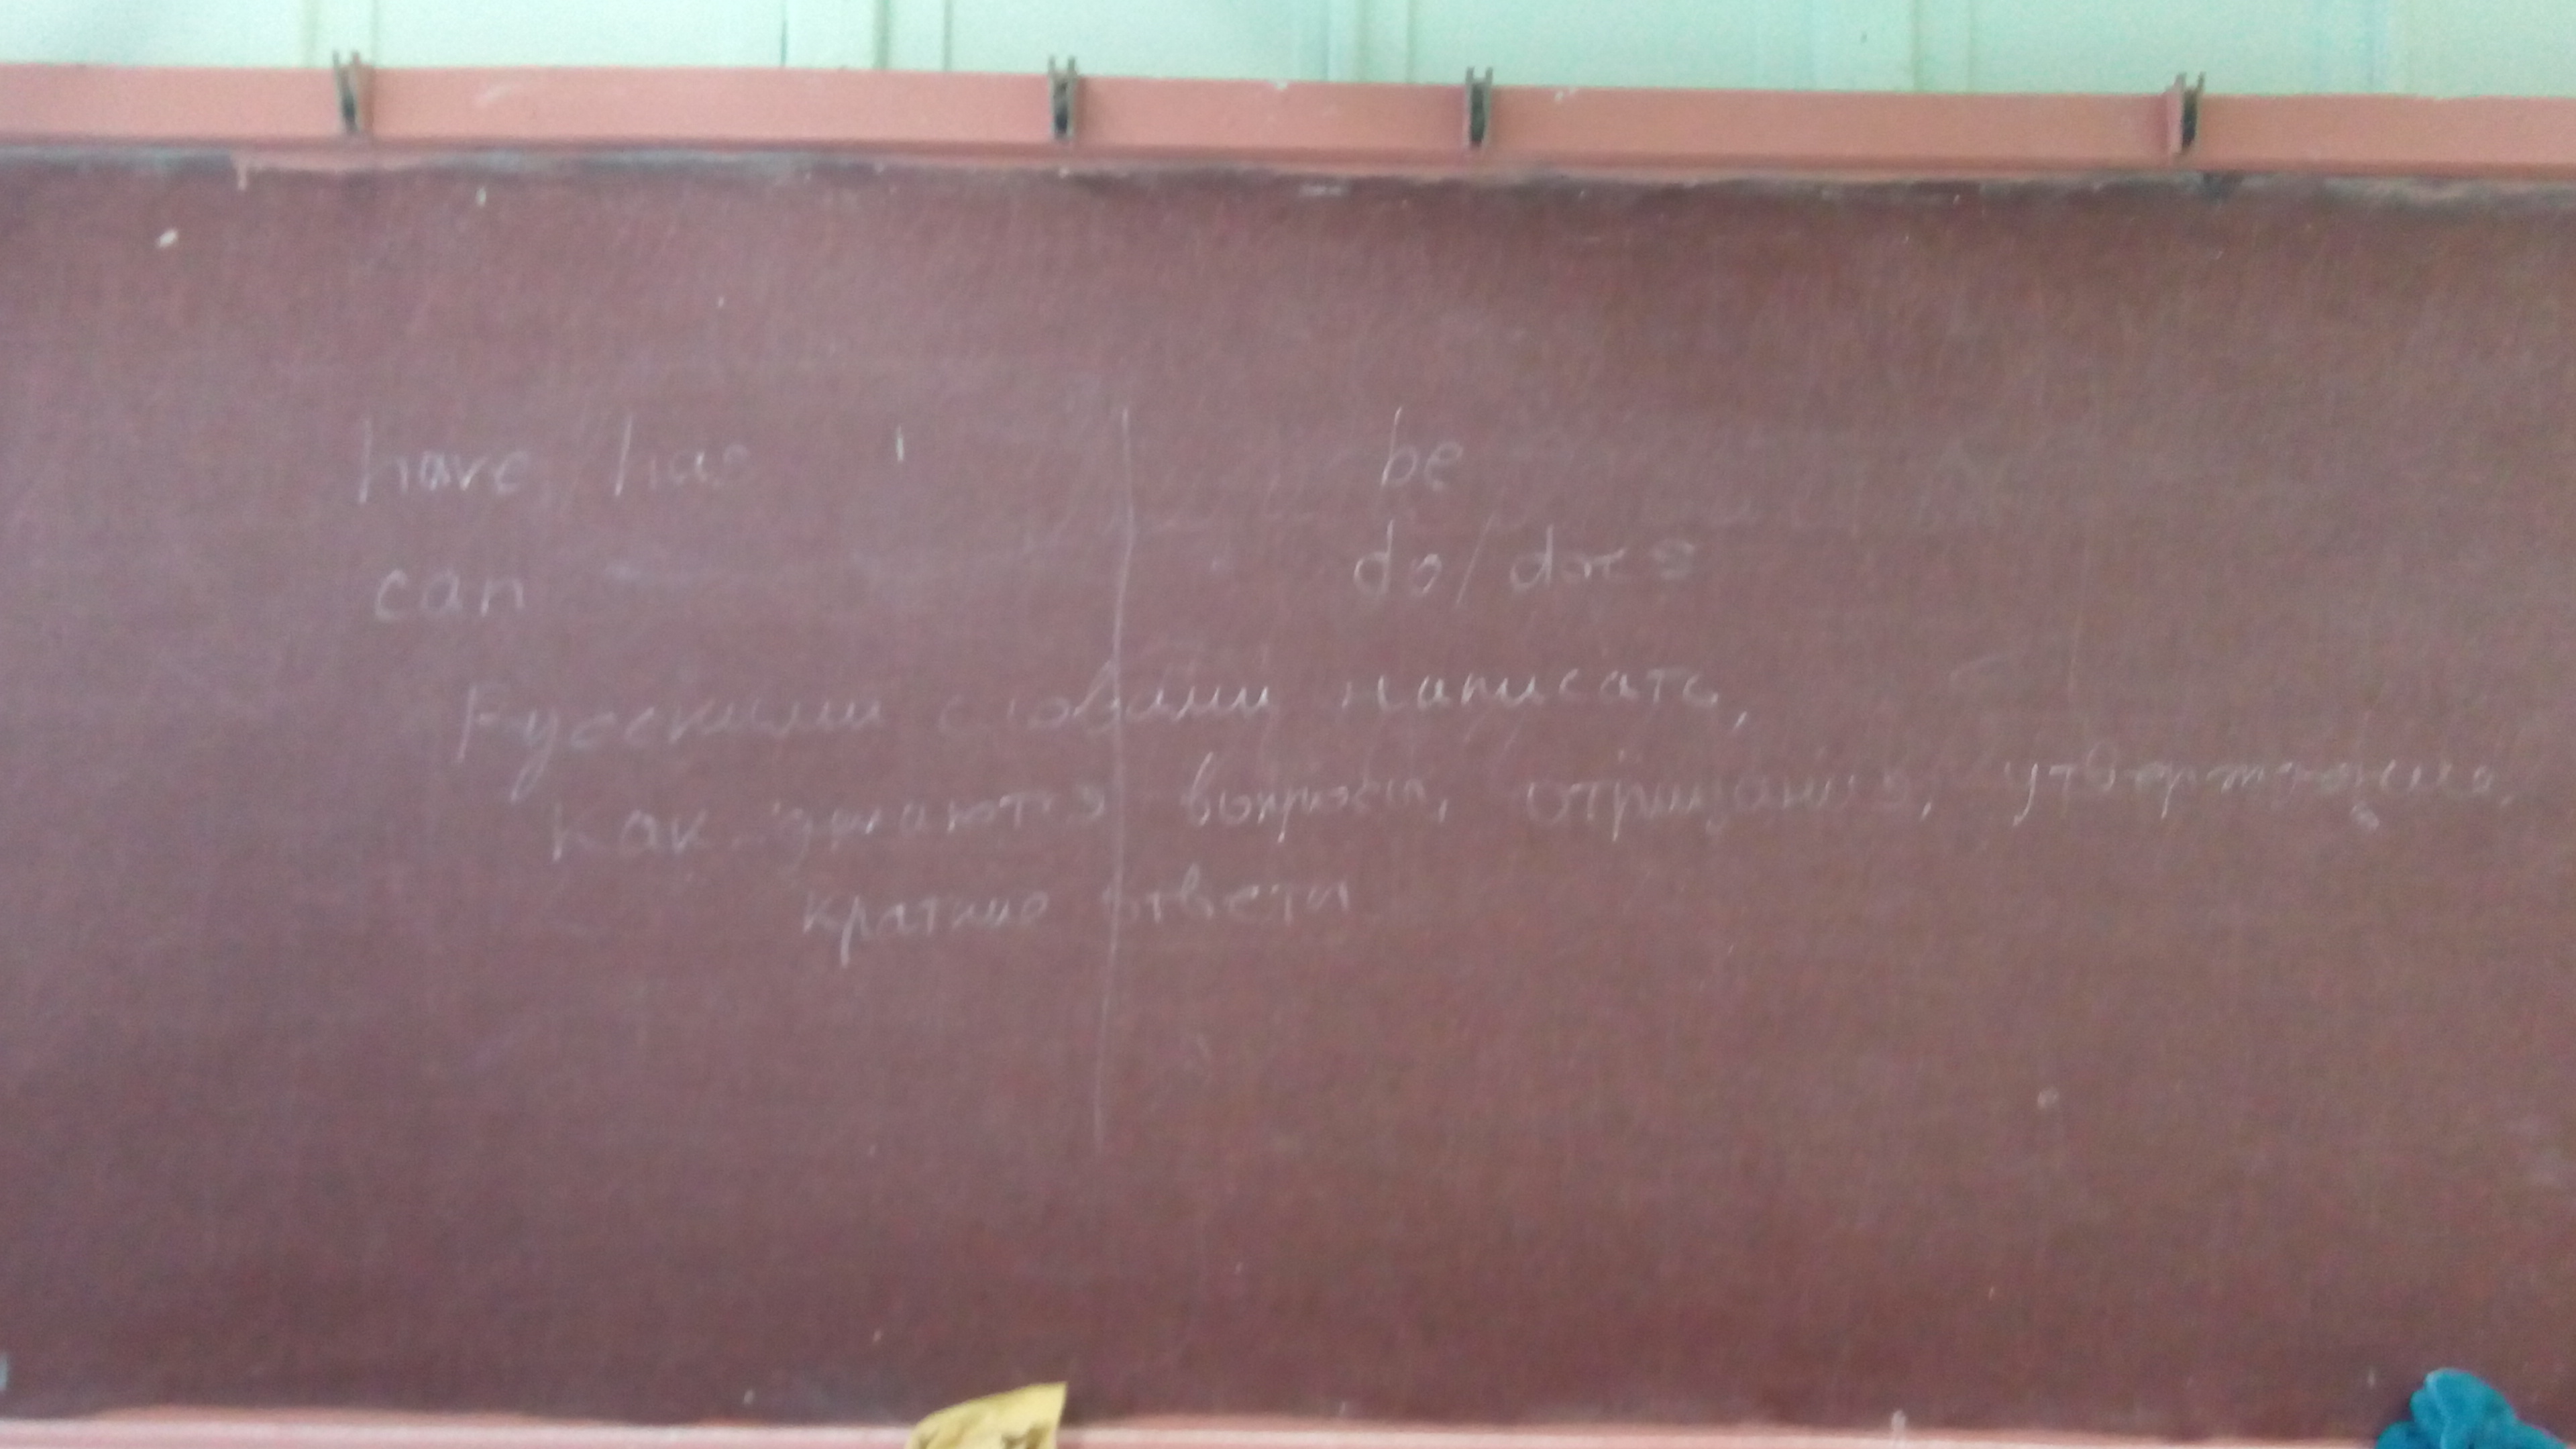 have / has
be
can
do / does
Русскими словами написать,
как делаются вопросы, отрицания, утверждения,
краткие ответы